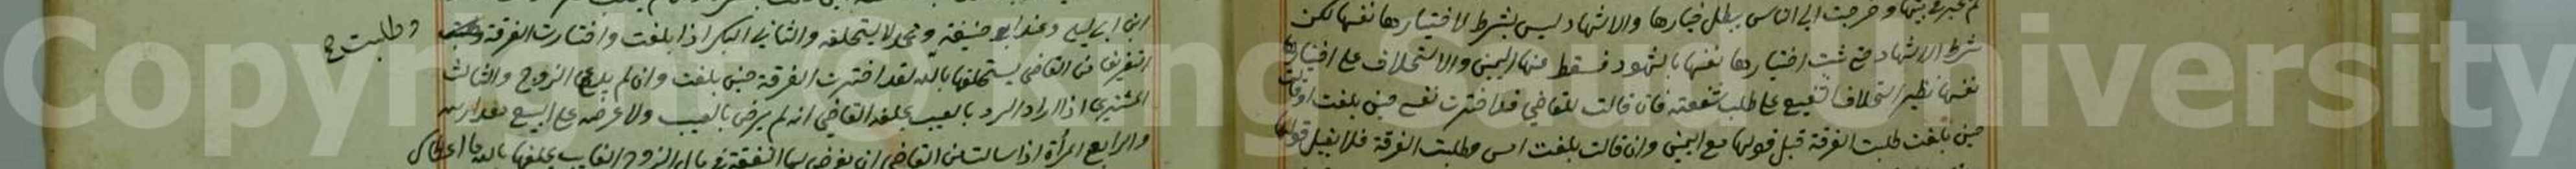 لم تخبر في بيتها وخرجت الى الناس يبطل خيارها والاشهاد ليس بشرط لاختيارها نفسها لكن
شرط الاشهاد حتى يثبت اختيارها نفسها بالشهود فسقط عنها اليمين والاستحلاف على اختيارها
نفسها نظير استحلاف الشفيع على طلب شفعته فان قالت للقاضي قد اخترت نفسي حين بلغت او قالت
حين بلغت طلبت الفرقة قبل قولها مع اليمين وان قالت بلغت امس وطلبت الفرقة فلا يقبل قولها
ابن ابي ليلى وعند ابي حنيفة ومحمد لا يستحلفه والثاني البكر اذا بلغت واختارت الفرقة
وطلبت
التفريق من القاضي يستحلفها بالله لقد اخترت الفرقة حين بلغت وان لم يدع الزوج والثالث
المشتري اذا اراد الرد بالعيب يحلفه القاضي انه لم يرض بالعيب ولا عرضه على البيع
والرابع المرأة اذا سالت من القاضي ان يفرض لها النفقة في مال الزوج الغايب يحلفها بالله ما
Copyright © King Saud University